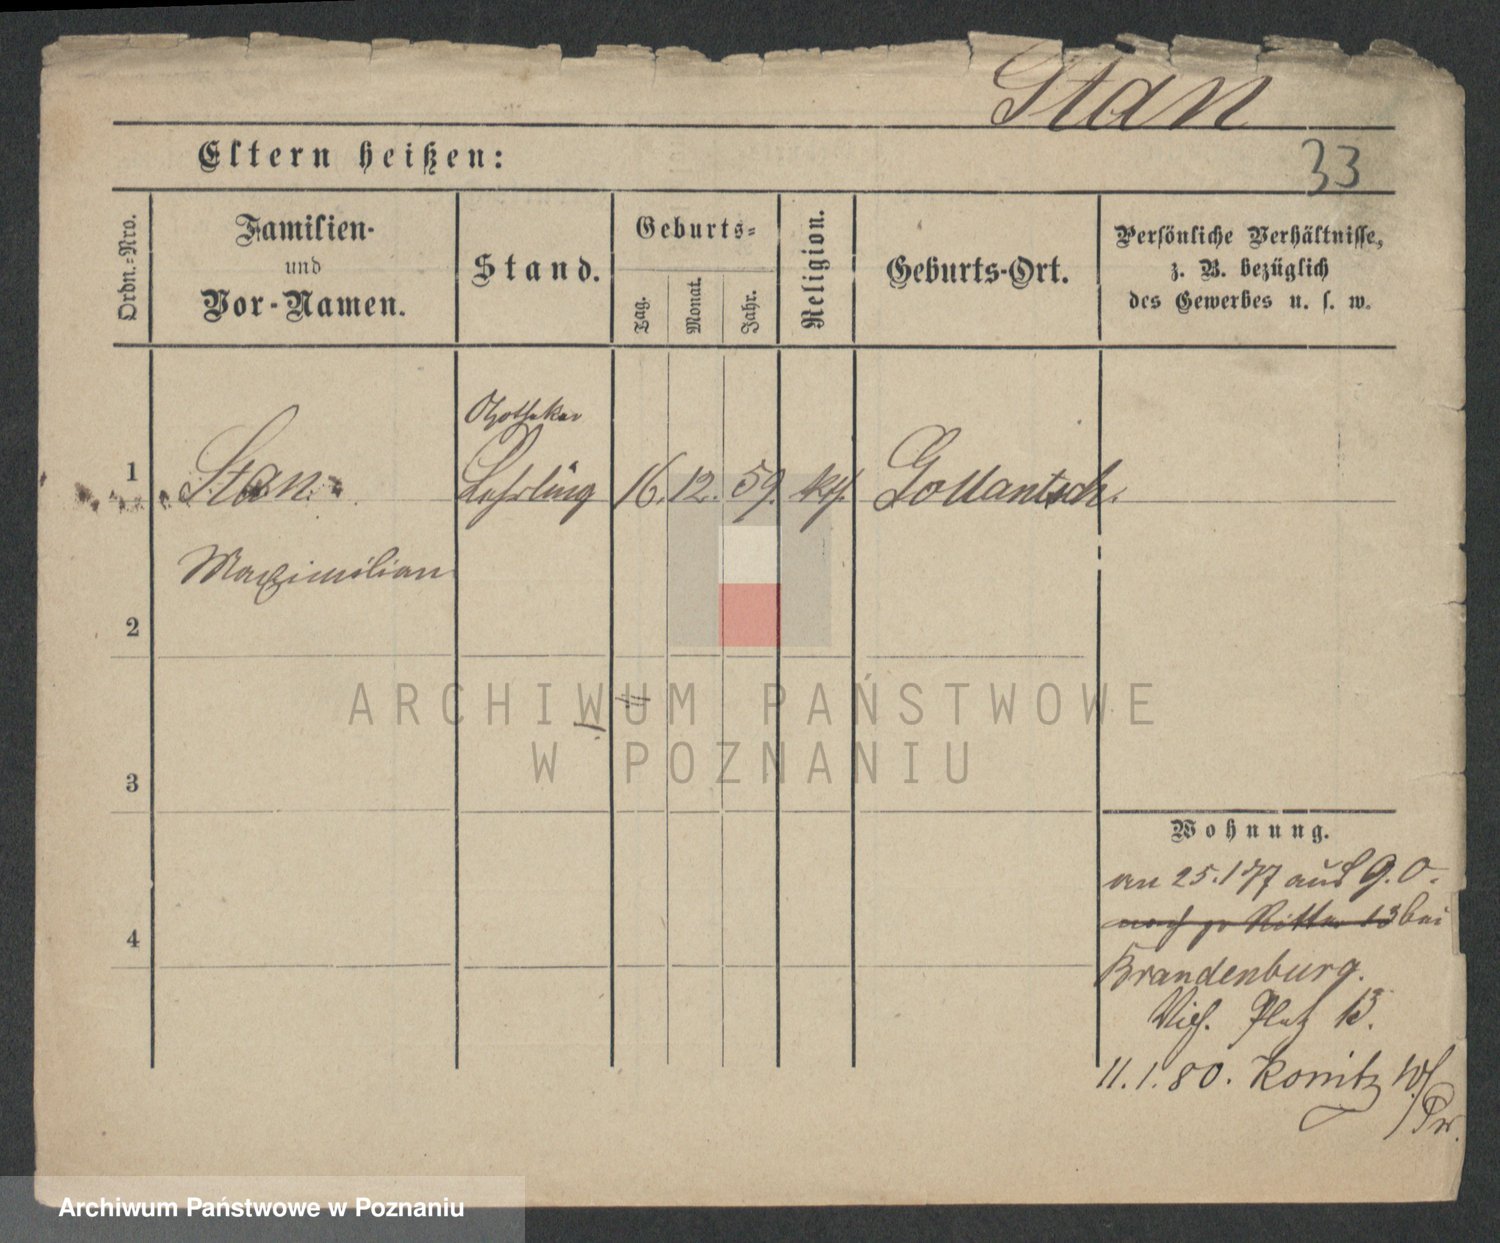 Stan
33
Eltern heißen:
Ordn.-Nro.
Familien-
und
Vor-Namen.
Stand.
Geburts-
Tag.
Monat.
Jahr.
Religion.
Geburts-Ort.
Persönliche Verhältnisse,
z. B. bezüglich
des Gewerbes u. s. w.
Apotheker
1 Stan Lehrling 16. 12. 59. kth. Gollantsch.
Maximilian
2
ARCHIWUM PAŃSTWOWE
W POZNANIU
3
Wohnung.
an 25.1 77 aus G.O.
4 Ritter 13 bei
Brandenburg.
Platz 13.
11.1.80. Konitz W/
Pr.
Archiwum Państwowe w Poznaniu